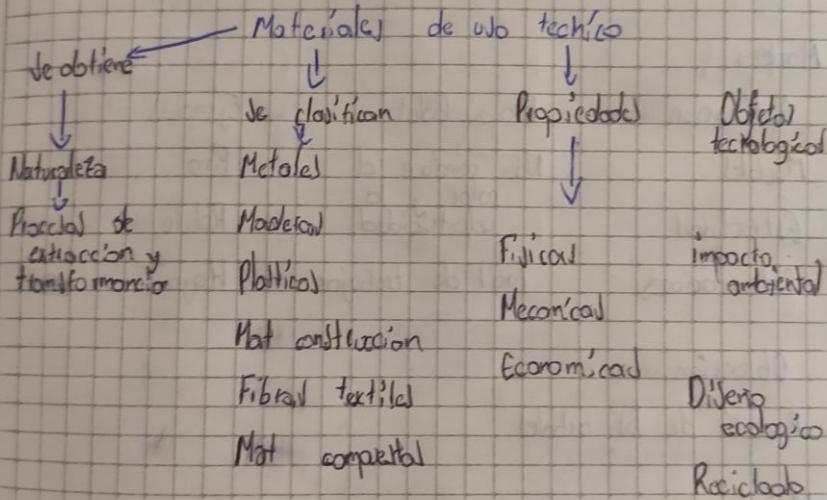 Materiales de uso techico
Se obtiene
Naturaleza
Procesos de
extraccion y
transformancio
Se clasifican
Metales
Maderas
Plasticos
Mat construccion
Fibras textiles
Mat compuestos
Propiedades
Fisicas
Mecanicas
Economicas
Objetos
tecnologicos
impacto
ambiental
Diseño
ecologico
Reciclado